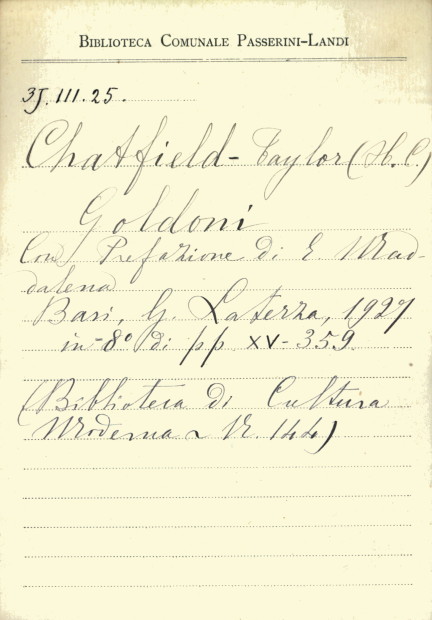 BIBLIOTECA COMUNALE PASSERINI-LANDI
3J. III. 25.
Chatfield - Taylor (H. C.)
Goldoni
Con Prefazione di E. Mad-
dalena
Bari, G. Laterza, 1927
in-8° di pp XV-359.
(Biblioteca di Cultura
Moderna - N. 144)